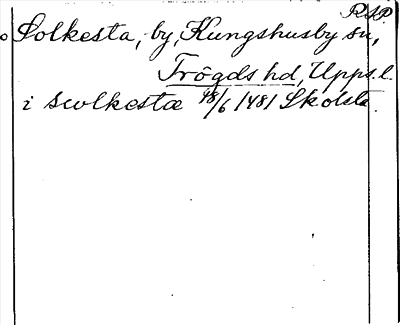 RSP
Solkesta, by, Kungshusby sn,
Trögds hd, Upps. l.
i swlkestæ 18/6 1481 Skolsta.